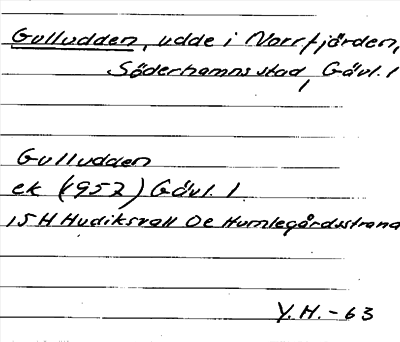 Gulludden, udde i Norrfjärden,
Söderhamns stad, Gävl. l
Gulludden
ek (1952) Gävl. l.
15H Hudiksvall 0e Humlegårdsstrand
Y.H. - 63